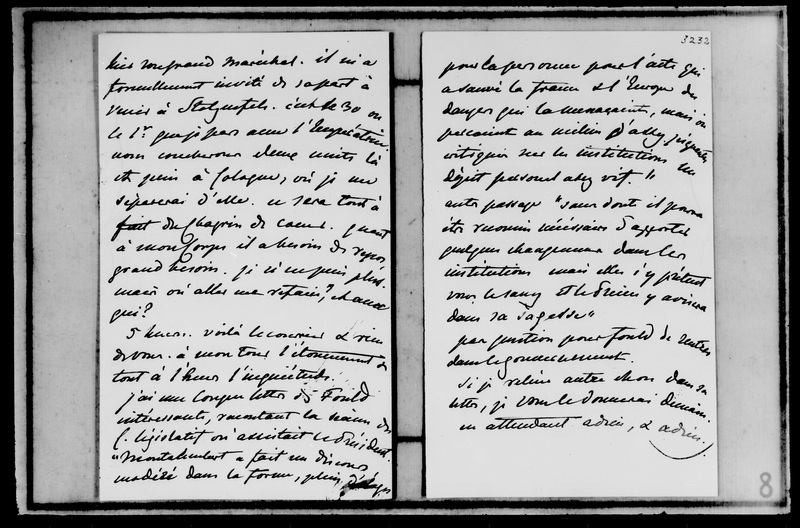 hier son grand maréchal. il m'a
formellement invité de sa part à
venir à Stolzenfels. c'est le 30 ou
le 1er que je pars avec l'Impératrice,
nous coucherons deux nuits là
et puis à Cologne, où je me
séparerai d'elle. ce sera tout à
fait du chagrin de cœur. quant
à mon corps il a besoin de repos
grand besoin. je n'en puis plus.
mais où aller me refaire? et avec
qui?
5 heures. voilà le courrier & rien
de vous. à mon tour l'étonnement &
tout à l'heure l'inquiétude.
j'ai une longue lettre de Fould
intéressante, racontant la séance du
C. législatif où assistait le président
"Montalembert a fait un discours
modéré dans la forme, plein d'éloges
3232
pour la personne pour l'acte qui
a sauvé la france & l'Europe des
dangers qui la menaçaient, mais on
percevait au milieu d'assez piquantes
critiques sur les institutions un
dépit personnel assez vif."
autre passage "sans doute il pourra
être reconnu nécessaire d'apporter
quelques changements dans les
institutions mais elles s'y prêtent
vous le savez et le Prince y avisera
dans sa sagesse"
pas question pour Fould de rentrer
dans le gouvernement.
Si je relève autre chose dans sa
lettre, je vous le donnerai demain.
en attendant adieu, & adieu.
8